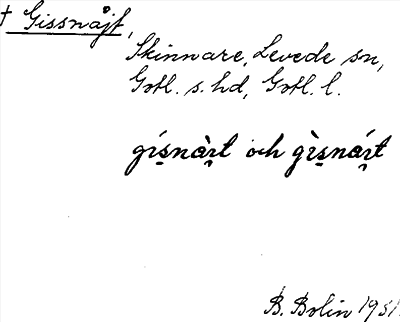 † Gissnåjt,
Skinnare, Levede sn,
Gotl. s. hd, Gotl. l.
gís̱nàɪ̯t och gìs̱náɪ̯t
B. Bolin 1951.